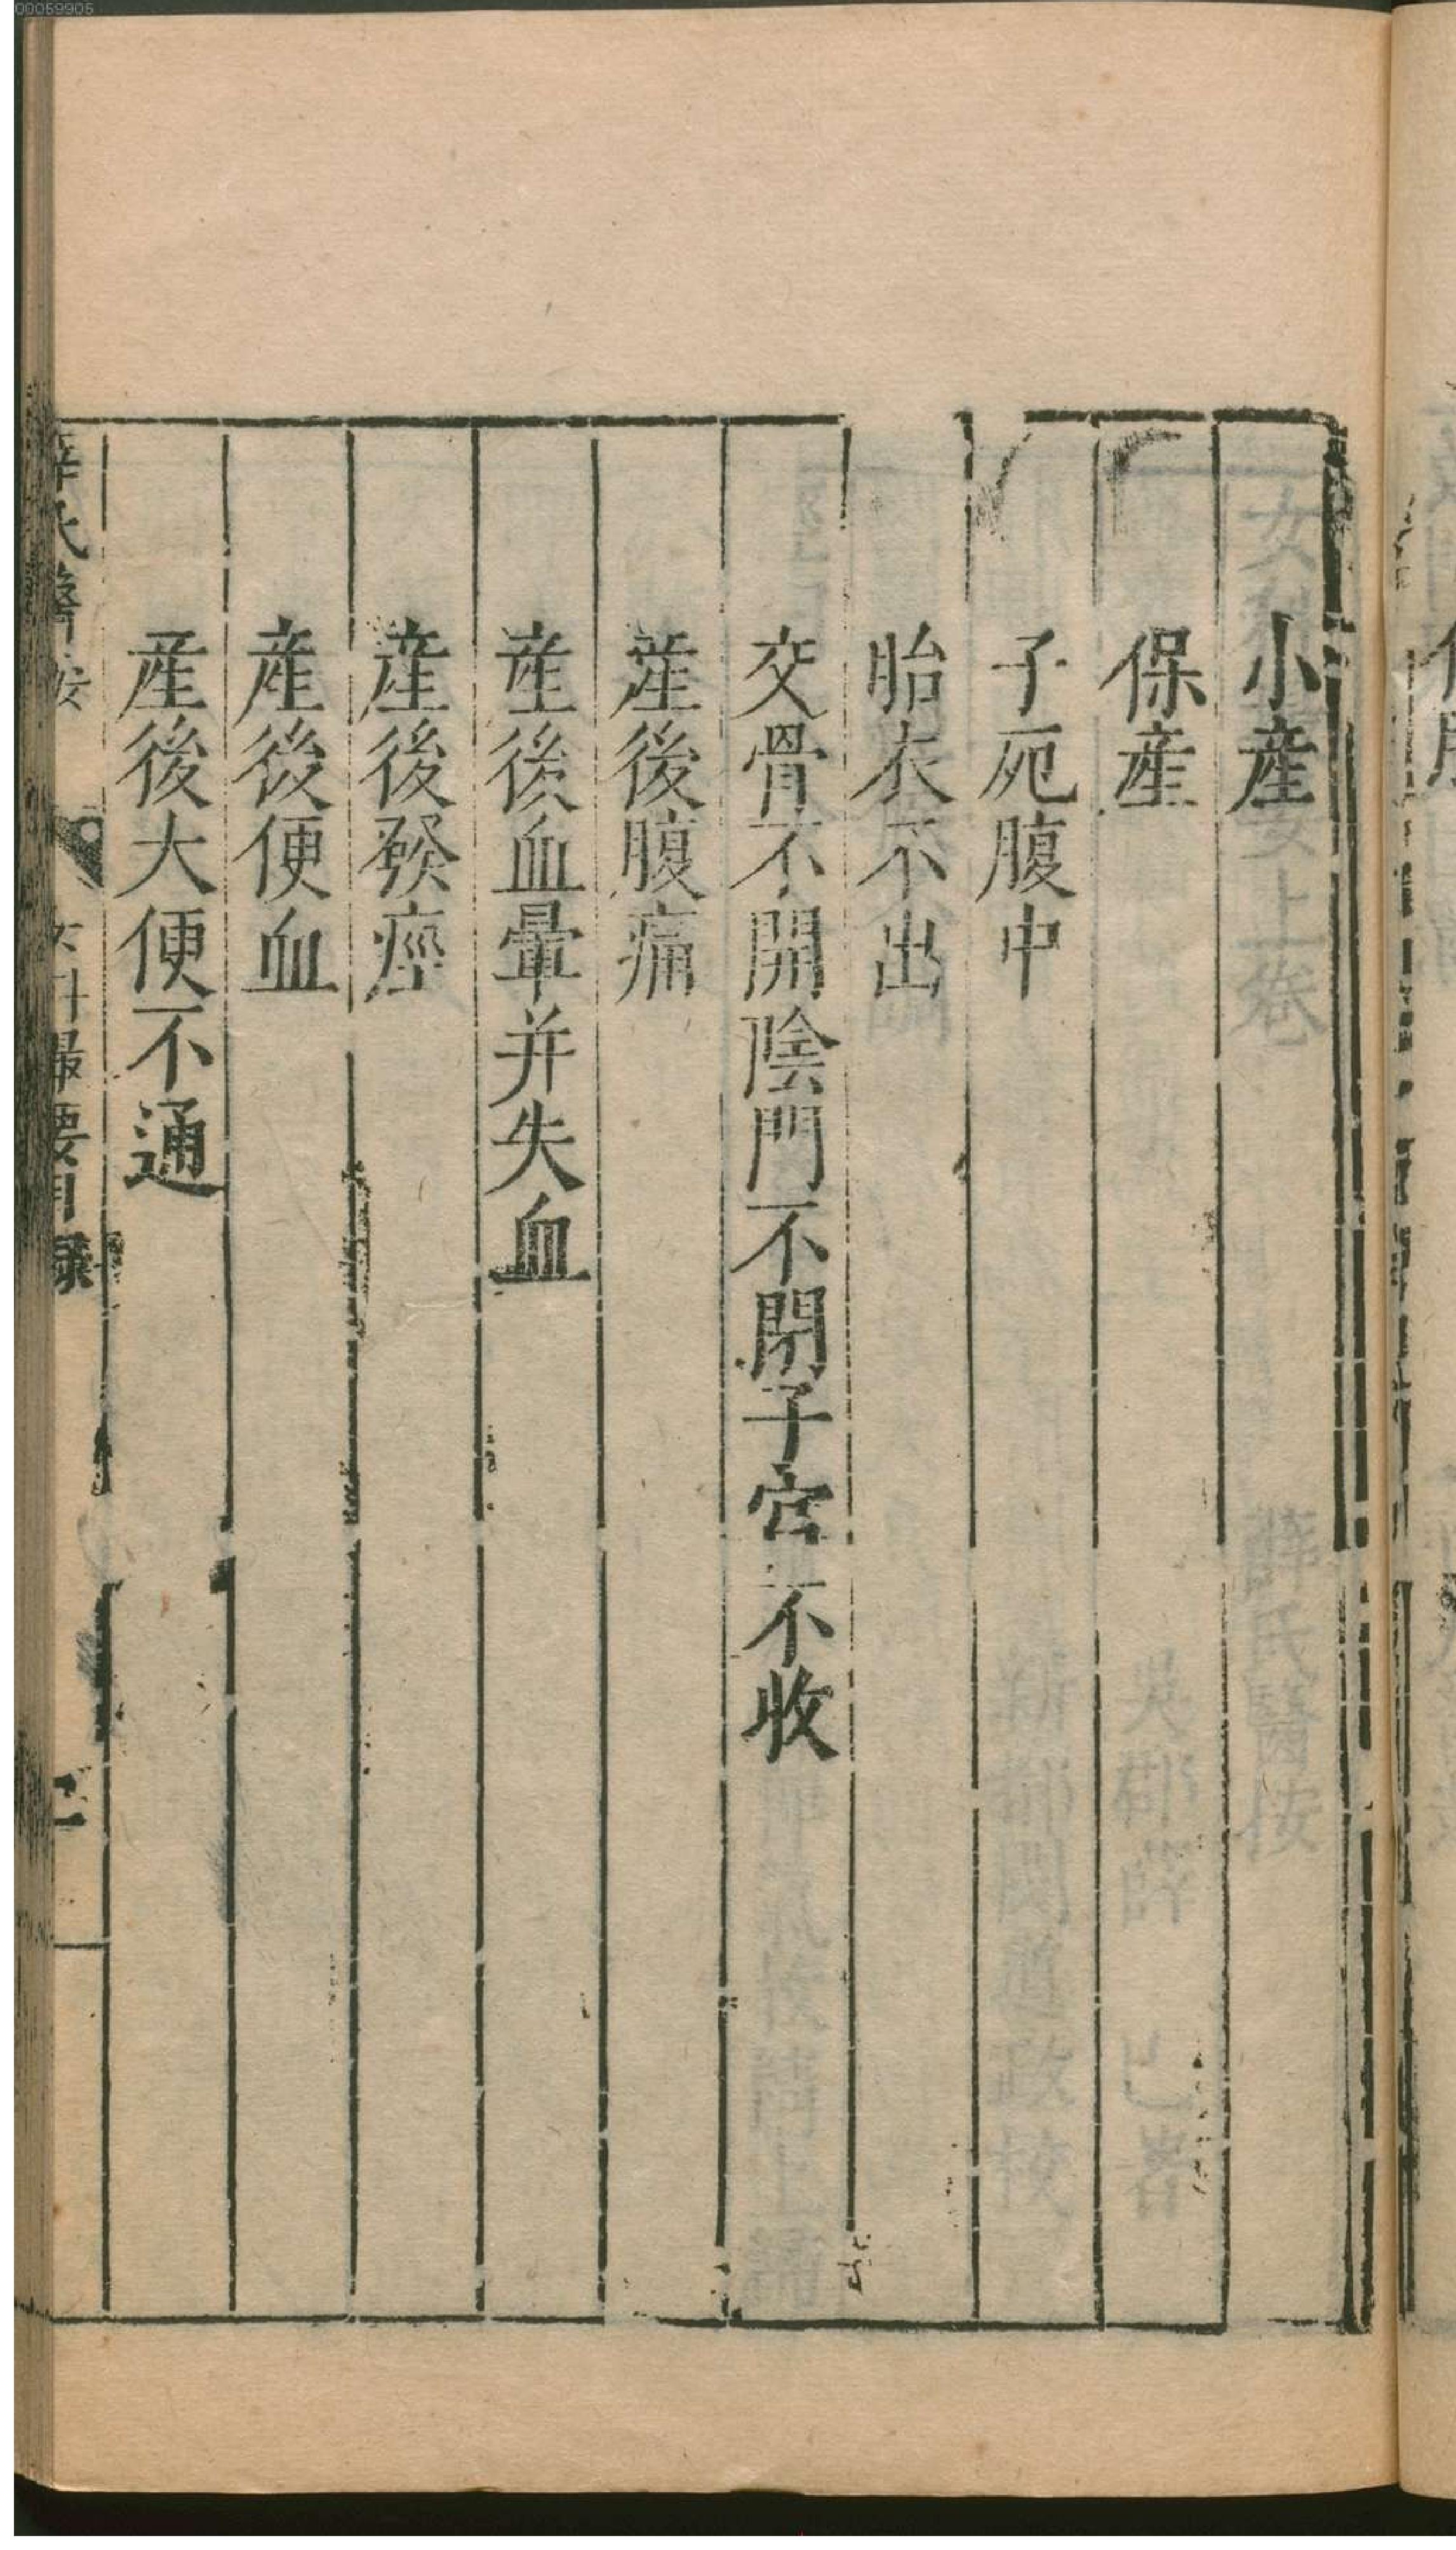 小産
保産
子死腹中
胎衣不出
交骨不開陰門不閉子宮不收
産後腹痛
産後血暈并失血
産後發痙
産後便血
産後大便不通
女科撮要目錄 二
00059905